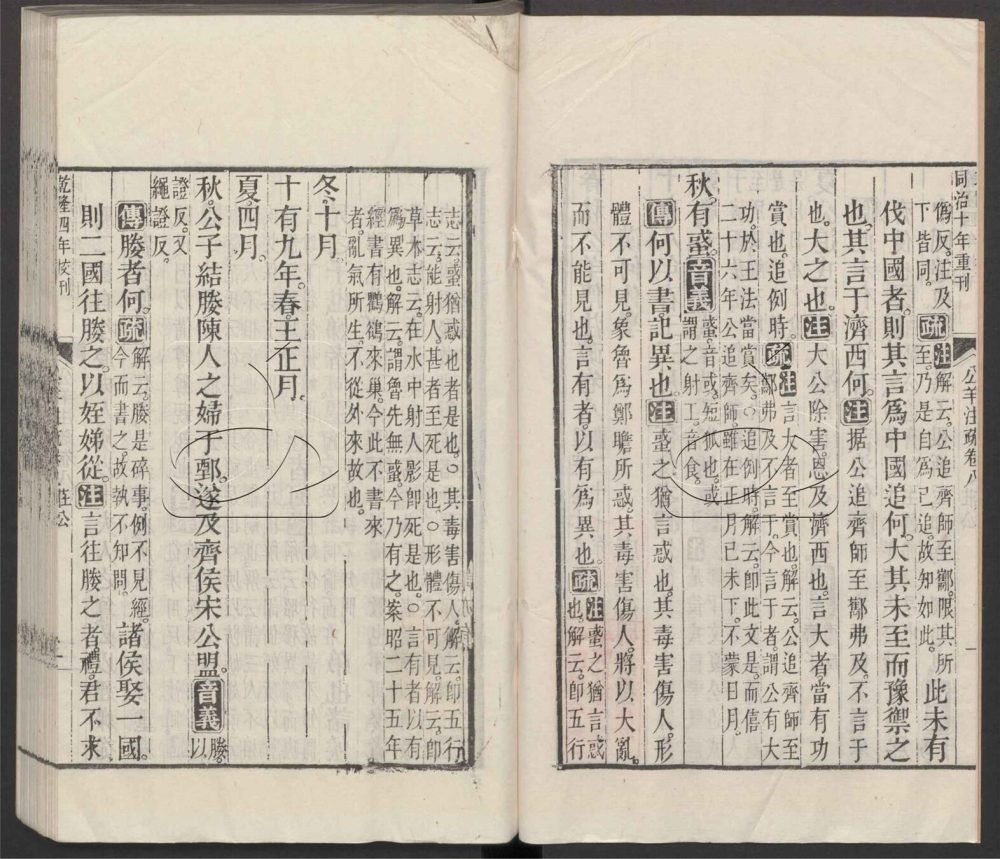 同治十年重刊
公羊注疏卷八
僞反。注及
下皆同。疏注解云。公追齊師至酅。限其所
至。乃是自爲己追。故知如此。此未有
伐中國者。則其言爲中國追何。大其未至而豫禦之
也。其言于濟西何。注据公追齊師至酅弗及。不言于
也。大之也。注大公除害。恩及濟西也。言大者當有功
賞也。追例時。疏注言大者至賞也。解云。公追齊師至
酅弗及。不言于。今言于者。謂公有大
功。於王法當賞矣。○追例時。解云。即此文是。而僖
二十六年公追齊師。雖在正月己未下。不蒙日月。
秋。有蜮。音義蜮。音或。短狐也。或
謂之射工。音食。
傳何以書。記異也。注蜮之猶言惑也。其毒害傷人。形
體不可見。象魯爲鄭瞻所惑。其毒害傷人。將以大亂
而不能見也。言有者。以有爲異也。疏注蜮之猶言惑
也。解云。即五行
志云。蜮猶惑也者是也。○其毒害傷人。解云。即五行
志云。能射人。甚者至死是也。○形體不可見。解云。即
草木志云。在水中射人影即死是也。○言有者以有
爲異也。解云。謂魯先無蜮。今乃有之。案昭二十五年
經書有鸜鵒來巢。今此不書來
者。亂氣所生。不從外來故也。
冬。十月。
十有九年。春。王正月。
夏。四月。
秋。公子結媵陳人之婦于鄄。遂及齊侯宋公盟。音義媵。以
證反。又
繩證反。
傳媵者何。疏解云。媵是碎事。例不見經。
今而書之。故執不知問。諸侯娶一國。
則二國往媵之。以姪娣從。注言往媵之者禮。君不求
乾隆四年校刊
莊公